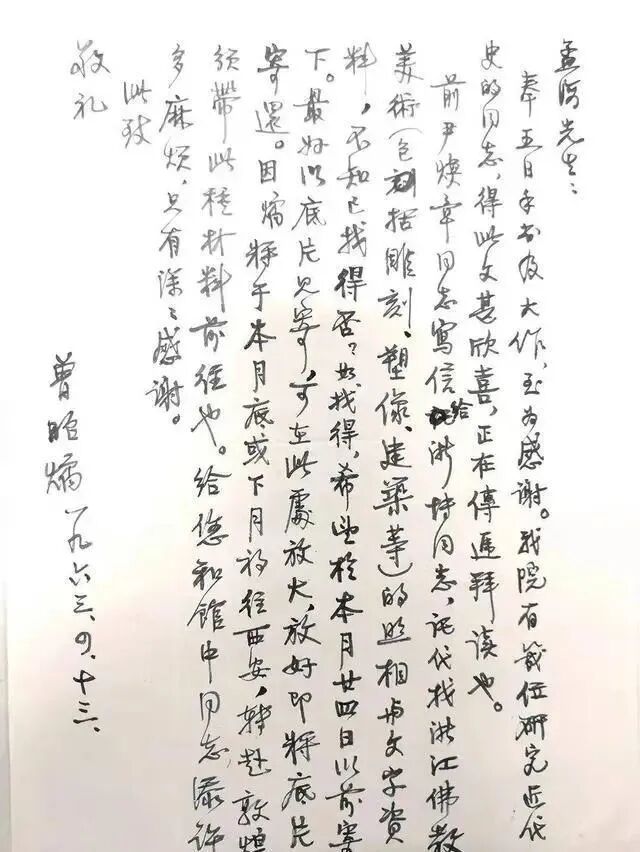 孟海先生：
奉五日手书及大作，至为感谢。我院有几位研究近代
史的同志，得此文甚欣喜，正在传遞拜读也。
前尹焕章同志寫信给浙博同志，託代找浙江佛教
美術（包括雕刻、塑像、建築等）的照相与文字資
料，不知已找得否？如找得，希望於本月廿四日以前寄
下。最好以底片见寄，可在此處放大，放好即将底片
寄還。因燏将于本月底或下月初往西安，轉赴敦煌
须帶此種材料前往也。给您和館中同志添许
多麻烦，只有深ミ感谢。
此致
敬礼
曾昭燏 一九六三、四、十三、